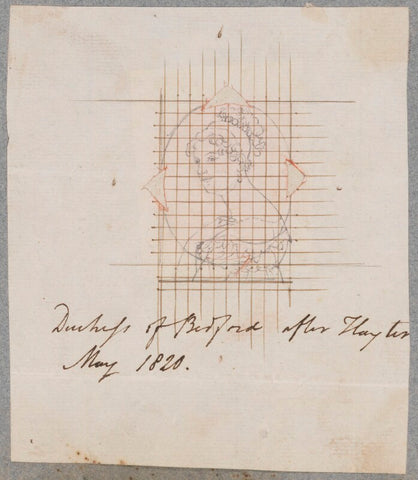 6
Duchess of Bedford after Hayter
May 1820.